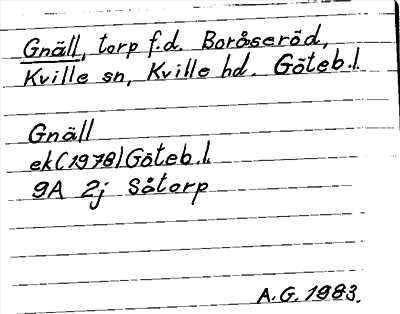 Gnäll, torp f.d. Boråseröd,
Kville sn, Kville hd. Göteb.l.
Gnäll
ek(1978)Göteb.l.
9A 2j Såtorp
A.G. 1983.